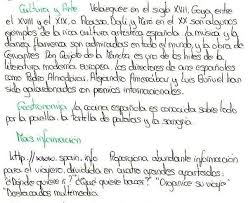 Cultura y Arte Velázquez en el siglo XVII, Goya entre
el XVIII y el XIX, o Picasso, Dalí y Miró en el XX son algunos
ejemplos de la rica cultura artística española. La música y la
danza flamenca son admiradas en todo el mundo, y la obra de
Cervantes, Don Quijote de la Mancha es uno de los hitos de la
literatura moderna europea. Los directores de cine españoles
como Pedro Almodóvar, Alejandro Amenábar y Luis Buñuel han
sido galardonados con premios internacionales.
Gastronomía La cocina española es conocida sobre todo
por la paella, la tortilla de patatas y la sangría.
Más información
http://www.spain.info Proporciona abundante información
para el viajero, dividida en cuatro grandes apartados:
"¿Dónde quiere ir? ¿Qué quiere hacer?" "Organice su viaje"
"Destacados multimedia.